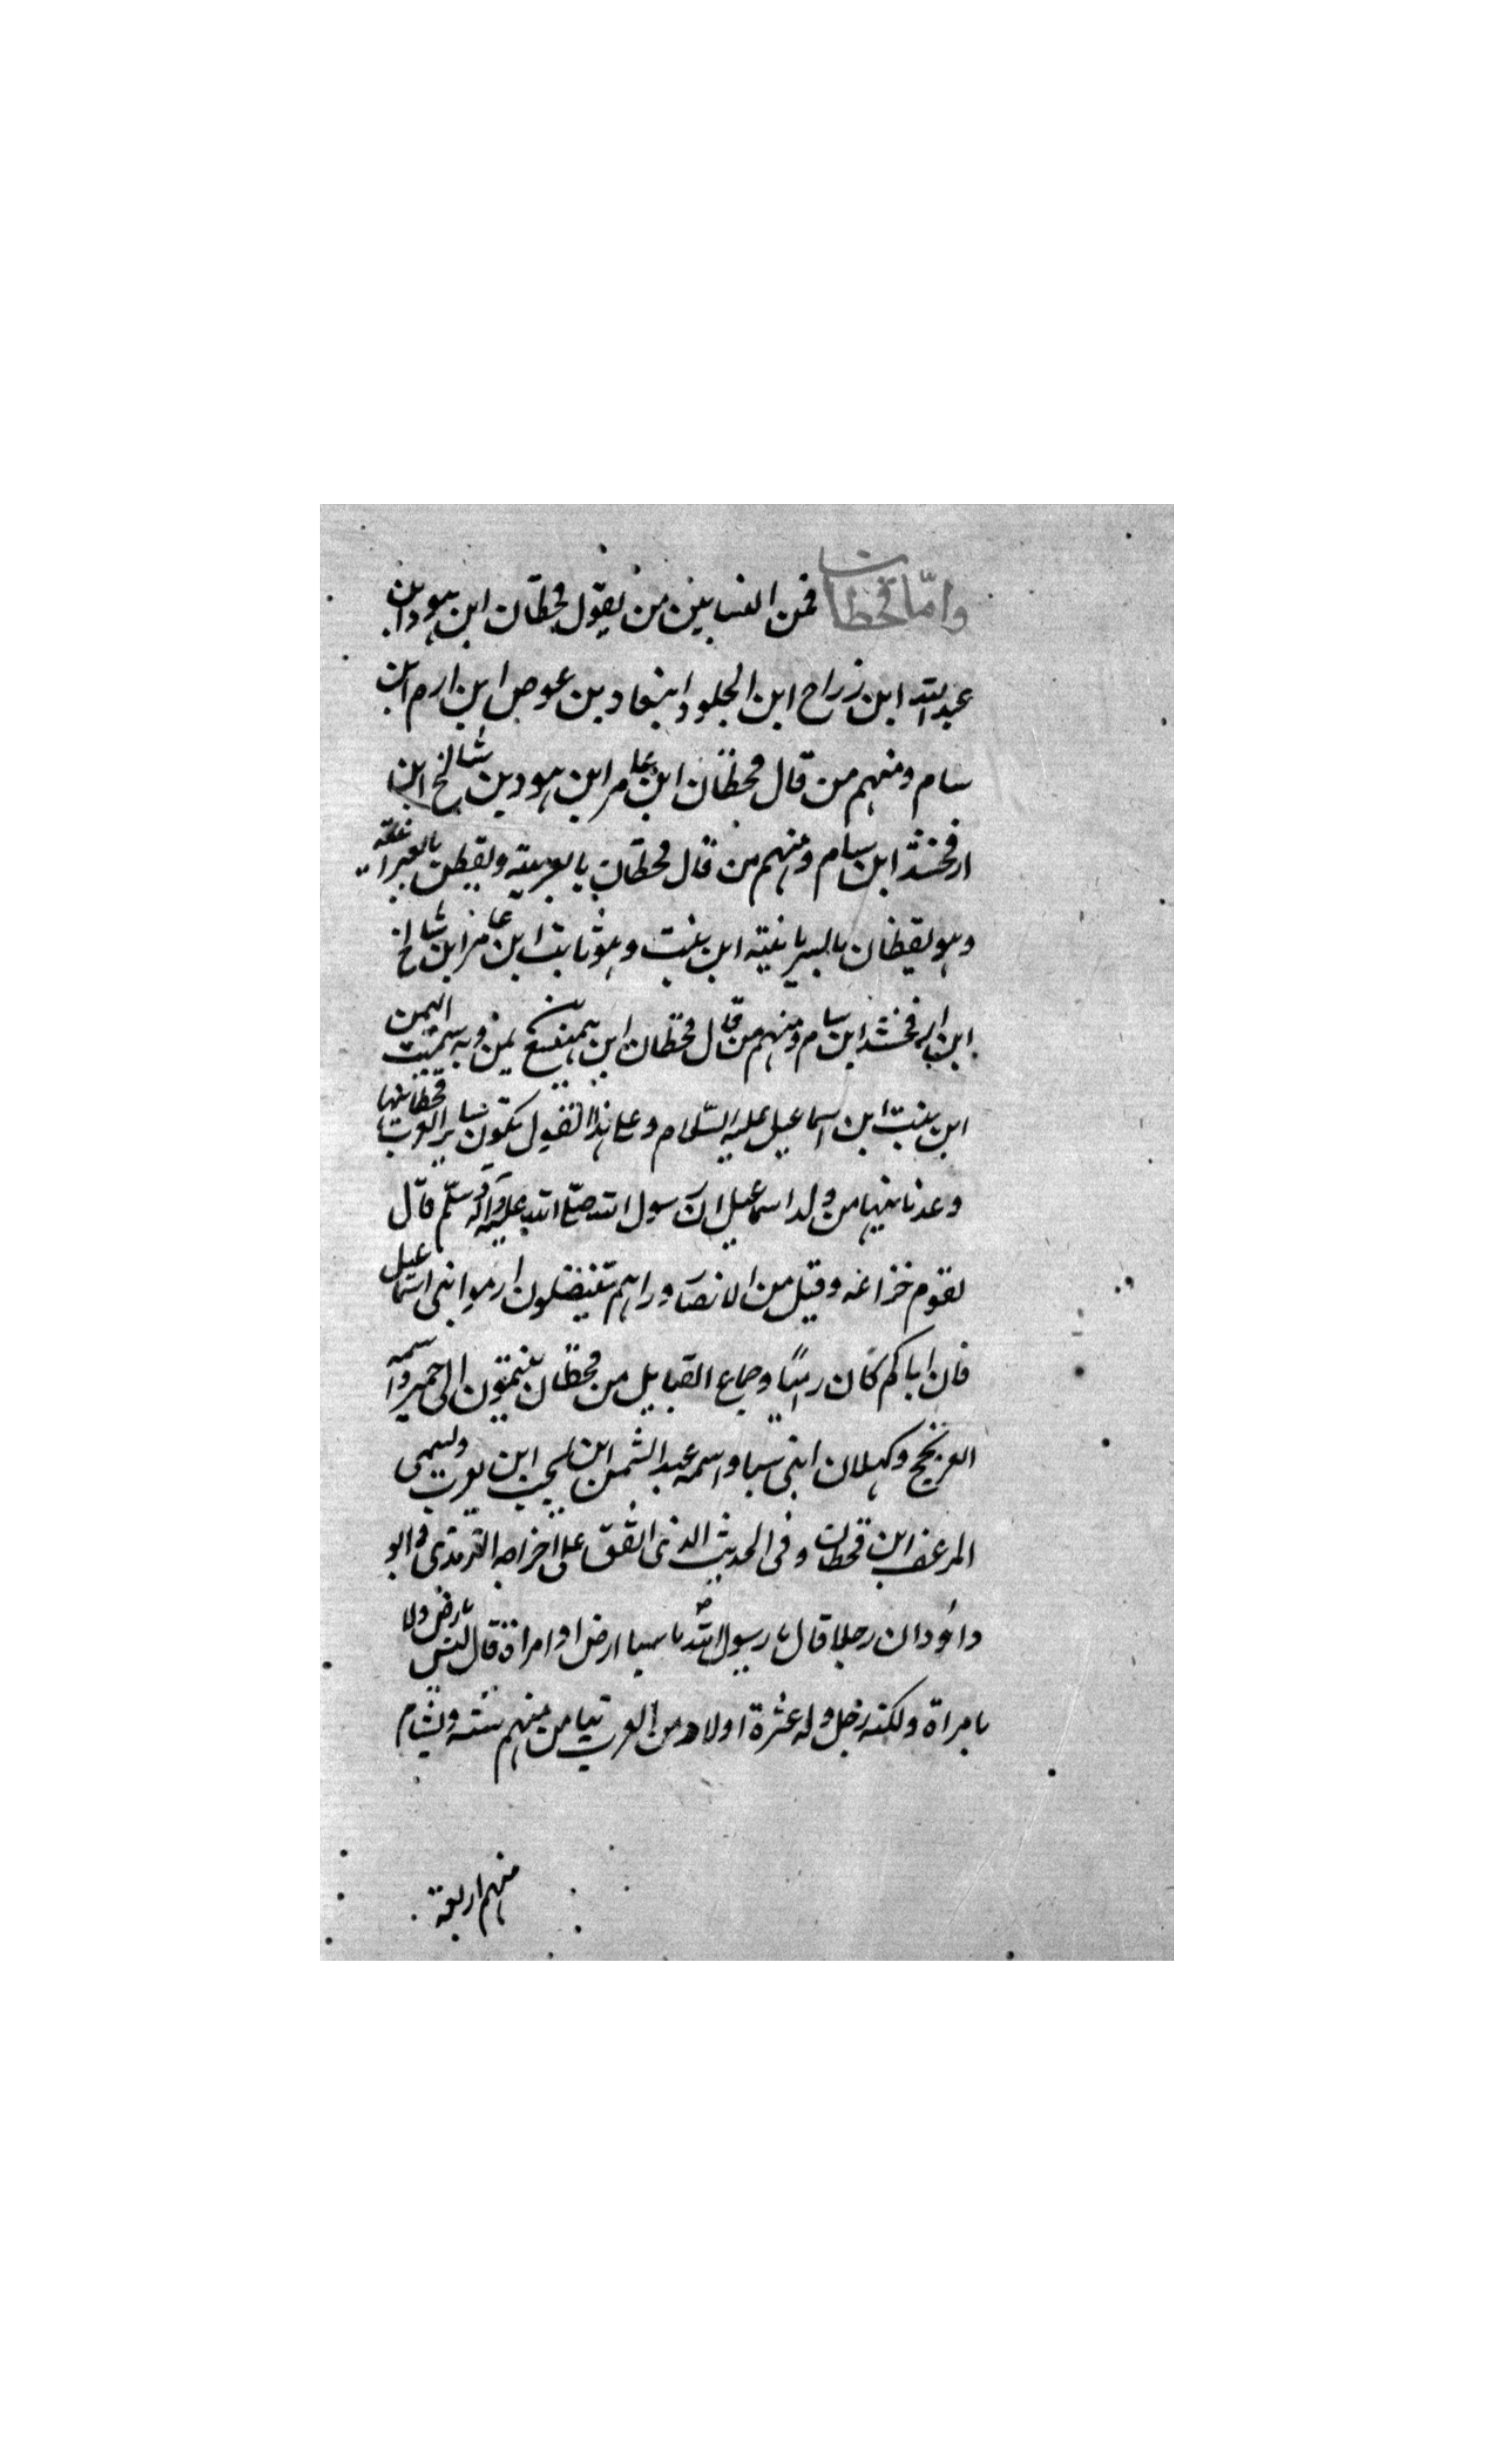 وامّا قحطان فمن النسابين من يقول قحطان ابن هود ابن
عبدالله ابن زراح ابن الجلود ابنعاد بن عوص ابن ارم ابن
سام ومنهم من قال قحطان ابن عامر ابن هود بن شالخ ابن
ارفخشد ابن سام ومنهم من قال قحطان بالعربية ويقطن بالعبرانية
وهو يقظان بالسريانية ابن بنت وهو ثابت ابن عامر ابن شالخ
ابن ارفخشد ابن سام ومنهم من قال قحطان ابن هميسع يمن وبه سميت اليمن
ابن بنت ابن اسماعيل عليه السّلام وعلى هذا القول تكون ساير العرب قحطانيها
وعدنانيها من ولد اسماعيل ان رسول الله صلّى الله عليه وآله وسلّم قال
لقوم خزاعه وقيل من الانصار وراهم يتنضلون ارموا بنى اسماعيل
فان اباكم كان راميًا وجماع القبايل من قحطان ينتمون الى حمير واسمه
العرنجج وكهلان ابنى سبا واسمه عبد الشمس ابن يشجب ابن يعرب ويسمى
المرعف ابن قحطان وفى الحديث الذى اتفق على اخراجه الترمذى وابو
داؤد ان رجلا قال يا رسول الله ما سبا ارض او امراة قال ليس بارض ولا
بامراة ولكنه رجل وله عشرة اولاد من العرب تيامن منهم ستة وتشام
منهم اربعة